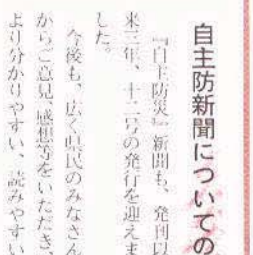 自主防新聞についての
『自主防災』新聞も、発刊以
来三年、十二号の発行を迎えま
した。
今後も、広く県民のみなさん
からご意見、感想等をいただき、
より分かりやすい、読みやすい